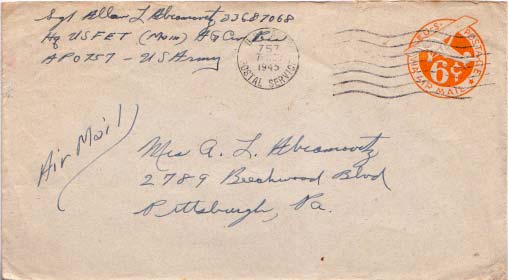 Sgt Allan L Abramovitz 33687068
Hq USFET (Main) AG Cas Br
APO 757 - US Army
757
1945
POSTAL SERVICE
U.S. POSTAGE
6¢
AIR MAIL
Air Mail
Mrs A. L. Abramovitz
2789 Beechwood Blvd
Pittsburgh, Pa.